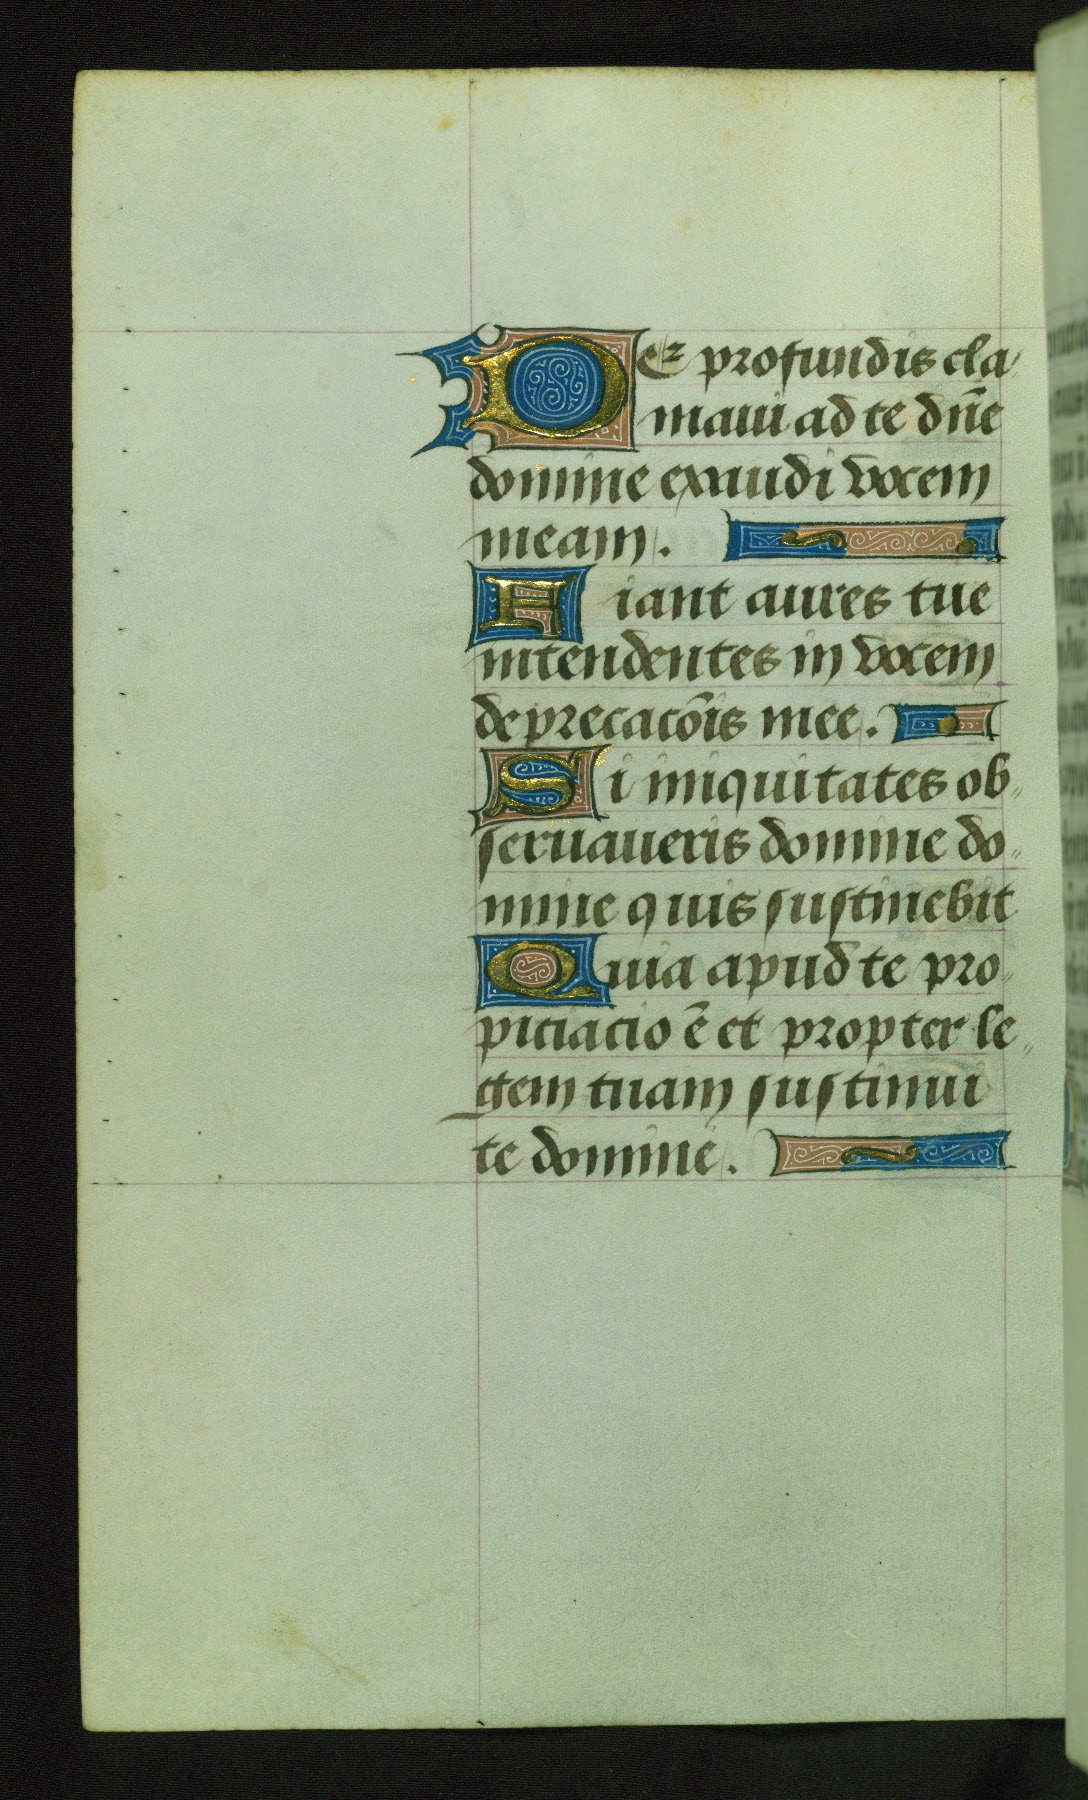 De profundis cla
maui ad te dn̄e
domine exaudi vocem
meam.
Fiant aures tue
intendentes in vocem
deprecacōis mee.
Si iniquitates ob
seruaueris domine do
mine quis sustinebit
Quia apud te pro
piciacio ē et propter le
gem tuam sustinui
te domine.